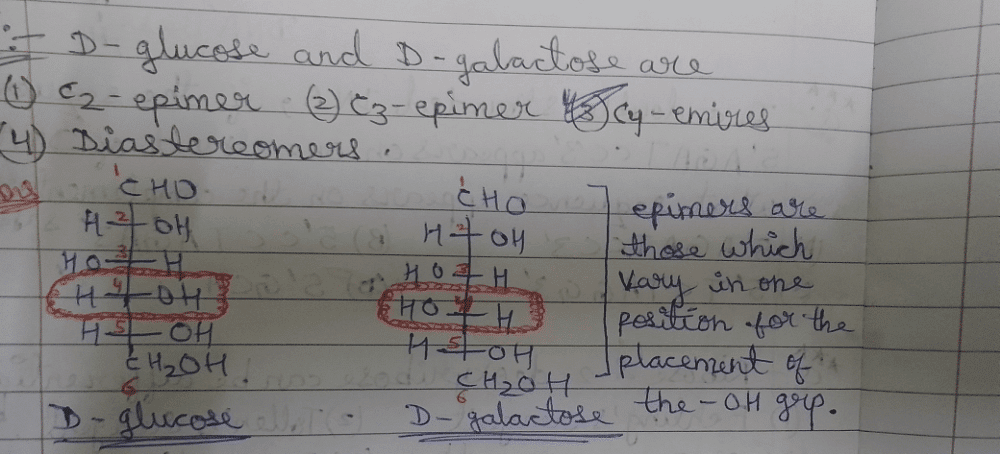 :- D-glucose and D-galactose are
(1) C2-epimer (2) C3-epimer (3) C4-emires
(4) Diastereomers.
Ans
1 CHO
H 2 OH
HO 3 H
H 4 OH
H 5 OH
CH2OH
6
D-glucose
1 CHO
H 2 OH
HO 3 H
HO 4 H
H 5 OH
CH2OH
6
D-galactose
epimers are
those which
vary in one
position for the
placement of
the -OH grp.